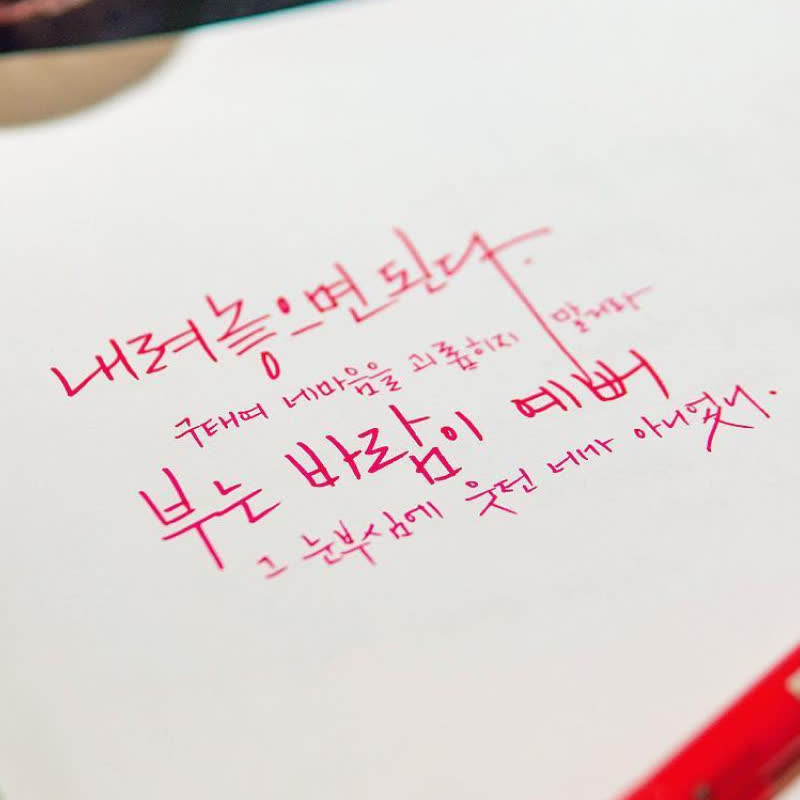 내려놓으면 된다.
구태여 네 마음을 괴롭히지 말거라
부는 바람이 예뻐
그 눈부심에 웃던 네가 아니었니.